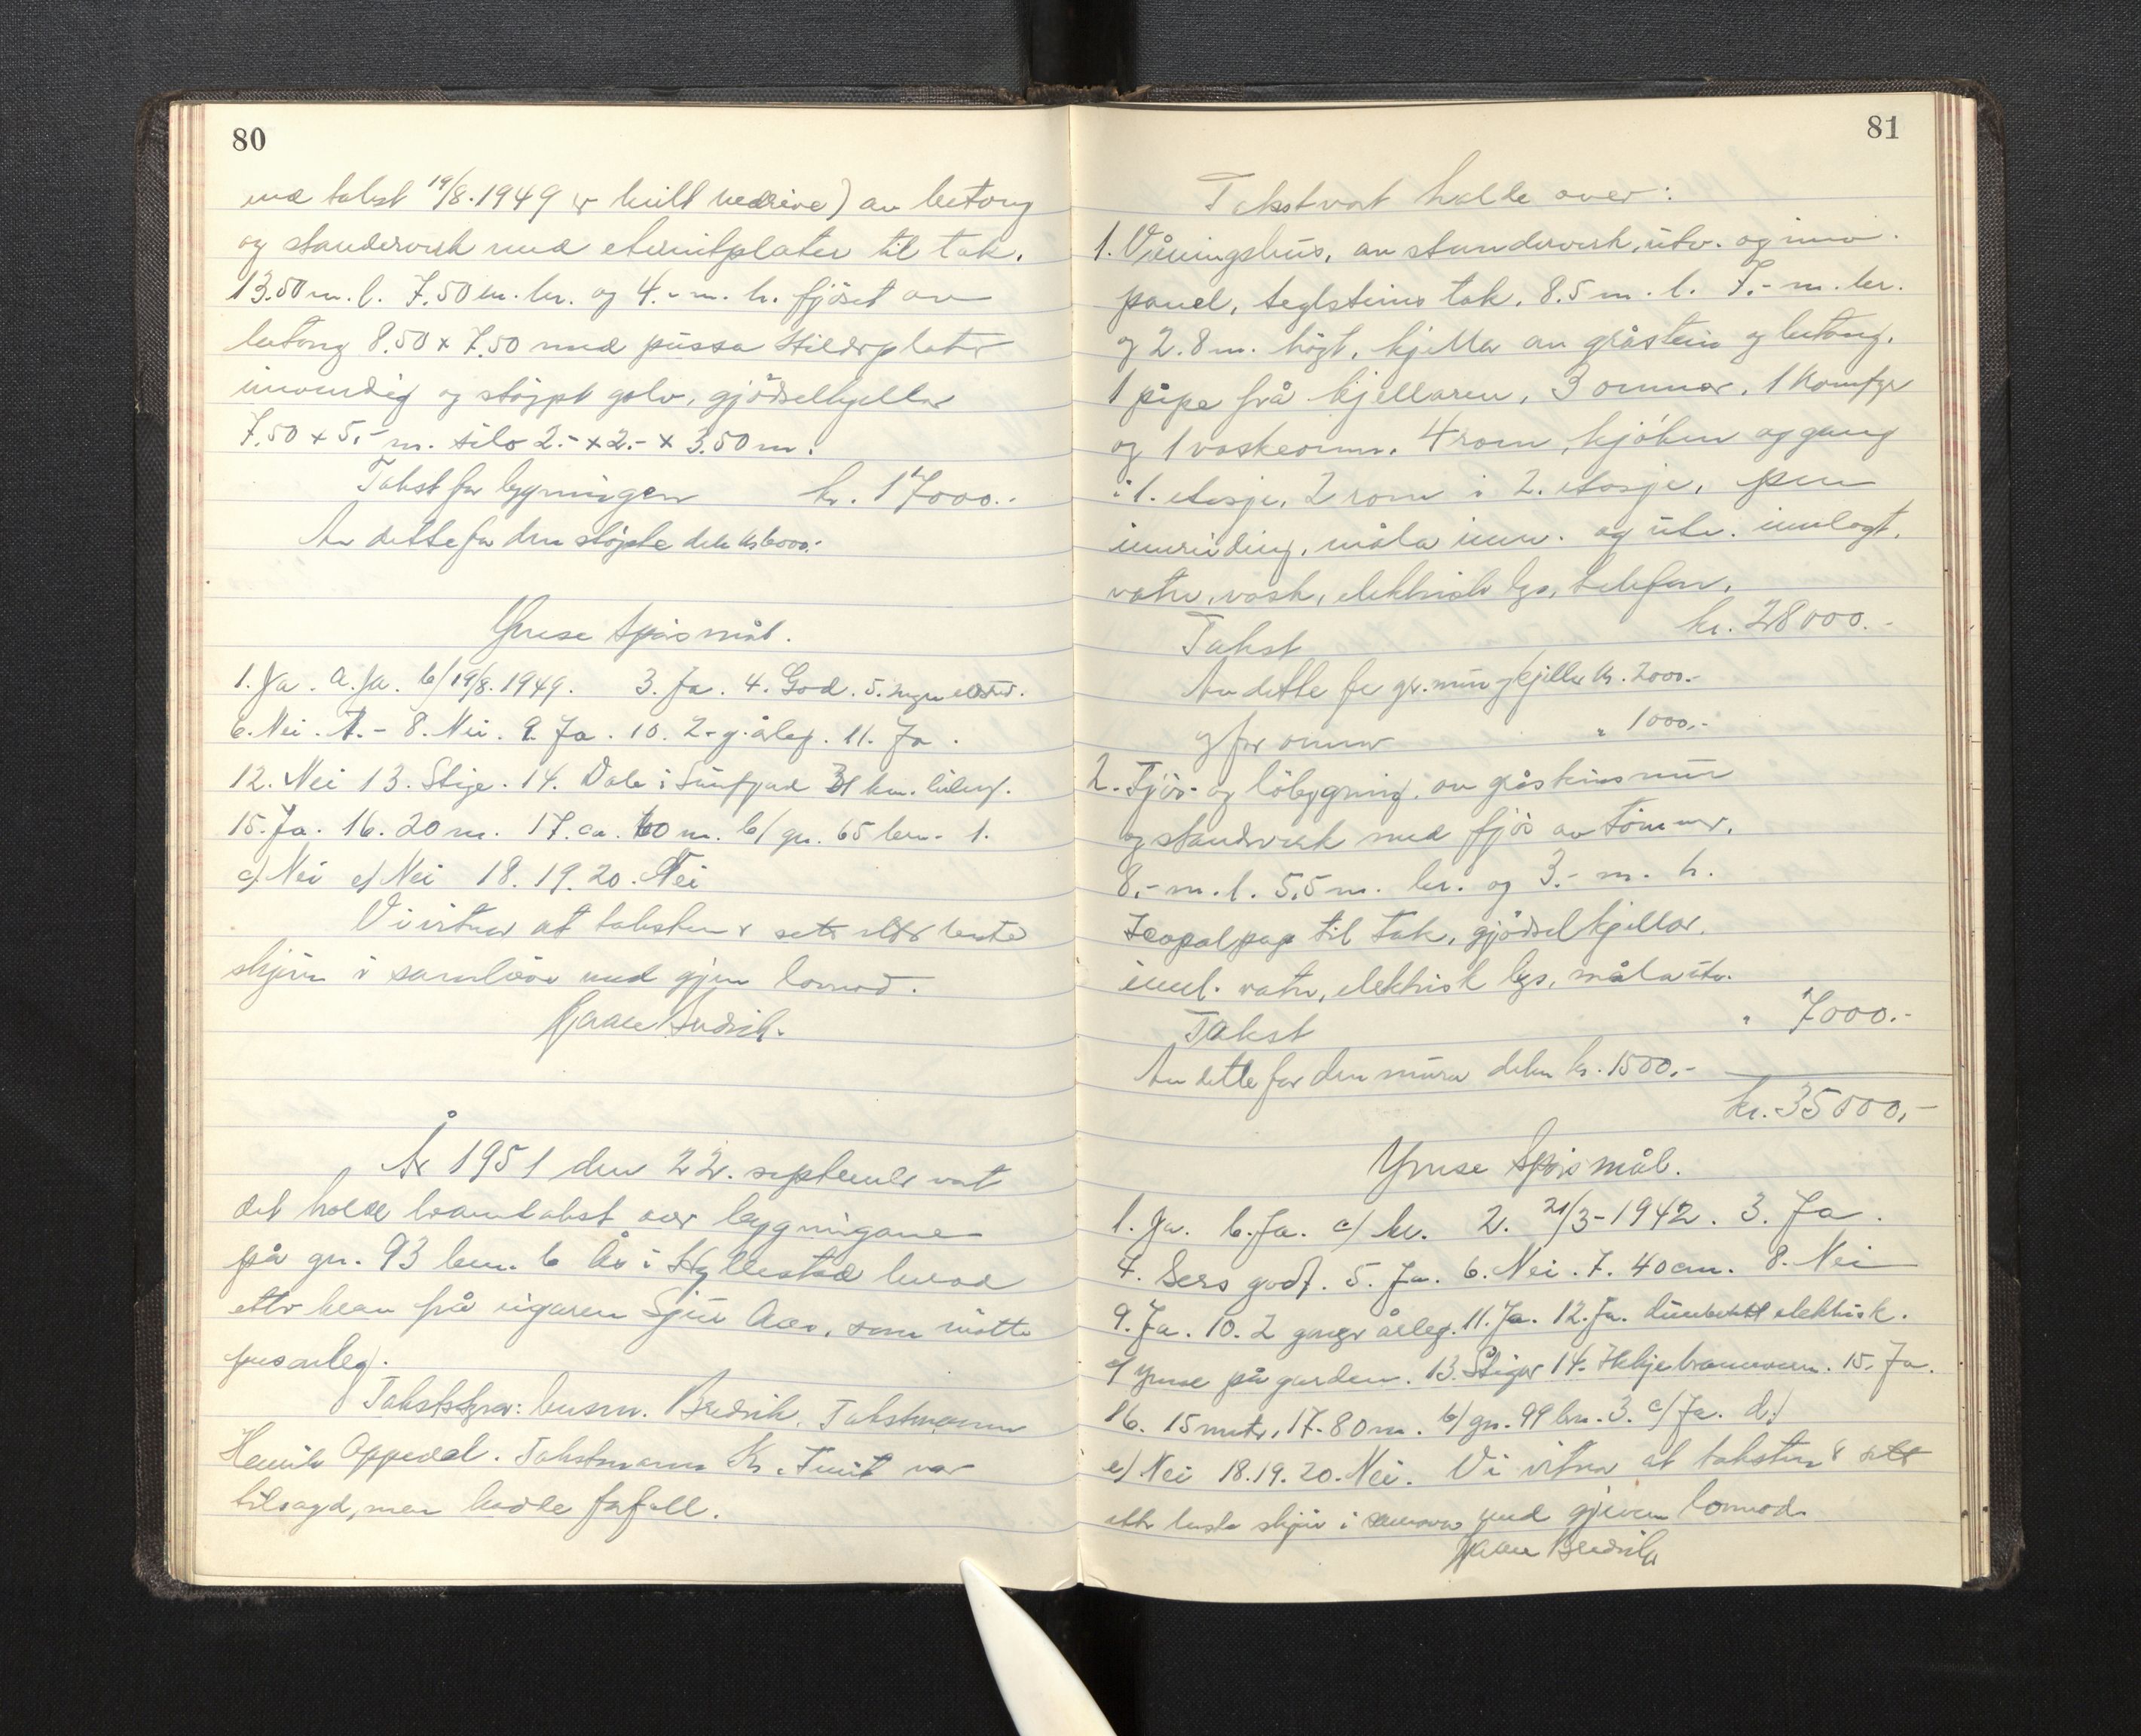 80
med takst 19/8.1949 er heilt nedrive) av betong
og standerverk med eternitplater til tak.
13.50 m. l. 7.50 m. br. og 4.- m. h. fjöset av
betong 8.50 x 7.50 med pussa plater
innvendig og støypt golv, gjödselkjellar
7.50 x 5.- m. silo 2.- x 2.- x 3.50 m.
Takst for bygningen kr. 17000.-
Av dette for den støypte del kr 6000.-
Ymse Spörsmål.
1. Ja. a. Ja. b/ 19/8.1949. 3. Ja. 4. God. 5.
6. Nei. 7. - 8. Nei. 9. Ja. 10. 2 g. årleg. 11. Ja.
12. Nei 13. Stige. 14. Dale i Sunnfjord 31 km.
15. Ja. 16. 20 m. 17. ca. 60 m. b/ gn. 65 bn. 1.
c) Nei e) Nei 18. 19. 20. Nei
Vi vitnar at taksten er sett etter beste
skjön i samsvar med gjeven lovnod.
År 1951 den 22. september vart
det halde branntakst over bygningane
på gn. 93 bn. 6 Ås i Hyllestad herad
etter krav frå eigaren Sjur Aas, som møtte
personleg.
Takststyrar: lensm. Bredvik. Takstmann
Henrik Oppedal. Takstmann Kr. var
tilsagd, men hadde forfall.
81
Takst vart halde over:
1. Våningshus, av standerverk, utv. og innv.
panel, teglsteins tak. 8.5 m. l. 7.- m. br.
og 2.8 m. högt, kjellar av gråstein og betong.
1 pipe frå kjellaren, 3 omnar, 1 komfyr
og 1 vaskeomn. 4 rom, kjöken og gang
i 1. etasje, 2 rom i 2. etasje, pen
innreiding, måla innv. og utv. innlagt.
vatn, vask, elektrisk lys, telefon.
Takst kr. 28000.-
Av dette for gr.mur og kjeller kr. 2000.-
og for omnar " 1000.-
2. Fjös- og löbygning. av gråsteinsmur
og standverk med fjös av tömmer.
8.- m. l. 5.5 m. br. og 3.- m. h.
Icopalpap til tak, gjödselkjellar.
innl. vatn, elektrisk lys, måla utv.
Takst " 7000.-
Av dette for den mura delen kr. 1500.-
kr. 35000,-
Ymse Spörsmål.
1. Ja. b. Ja. c/ 2. 21/3-1942. 3. Ja.
4. Sers godt. 5. Ja. 6. Nei. 7. 40 cm. 8. Nei
9. Ja. 10. 2 gonger årleg. 11. Ja. 12. Ja. elektrisk.
og ymse på garden. 13. Stigar 14. brannvern. 15. Ja.
16. 15 meter. 17. 80 m. b) gn. 99 bn. 3. c) Ja. d.)
e) Nei 18. 19. 20. Nei. Vi vitnar at taksten er sett
etter beste skjön i samsvar med gjeven lovnod.
Bredvik